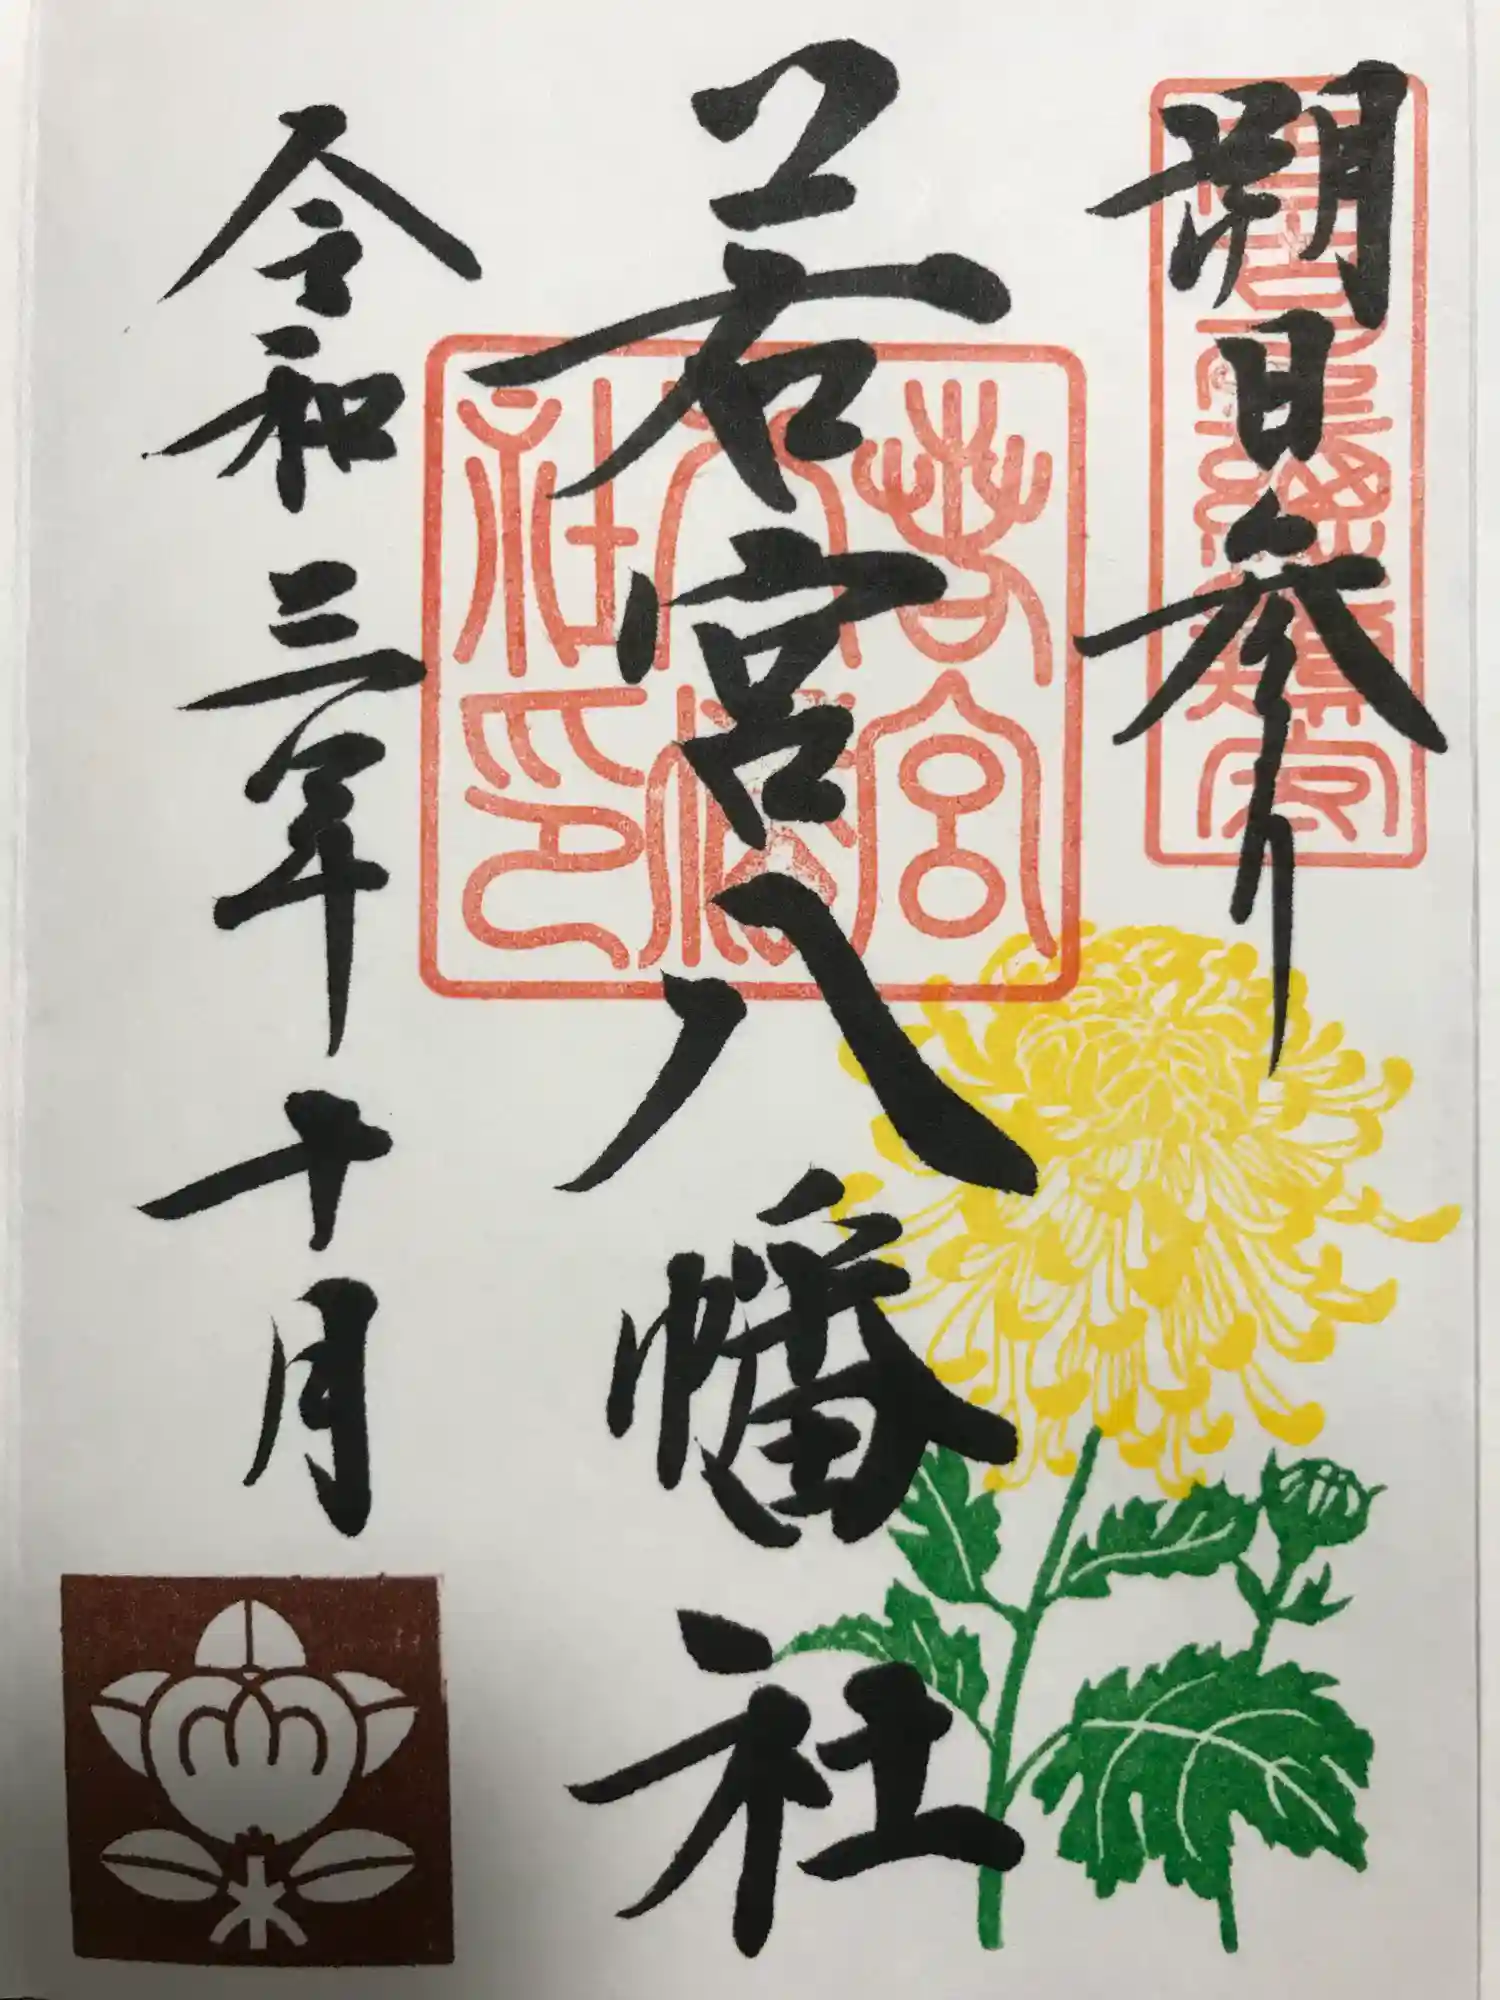 朔日参り
若宮八幡社
若宮八幡社印
令和三年十月